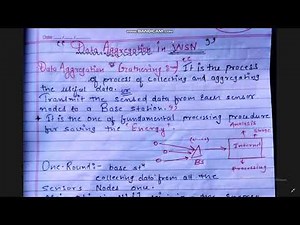 "Data Aggregation in WSN"
Data Aggregation & Gathering :- It is the process
of process of collecting and aggregating
the useful data. or
Transmit the sensed data from each sensor
nodes to a Base station.
* It is the one of fundamental processing procedure
for saving the Energy.
Analysis
Internet
BS
Processing
One-Round:- base
collecting data from all the
Sensors Nodes one